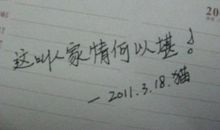 20
这叫人家情何以堪！
—2011.3.18.猫